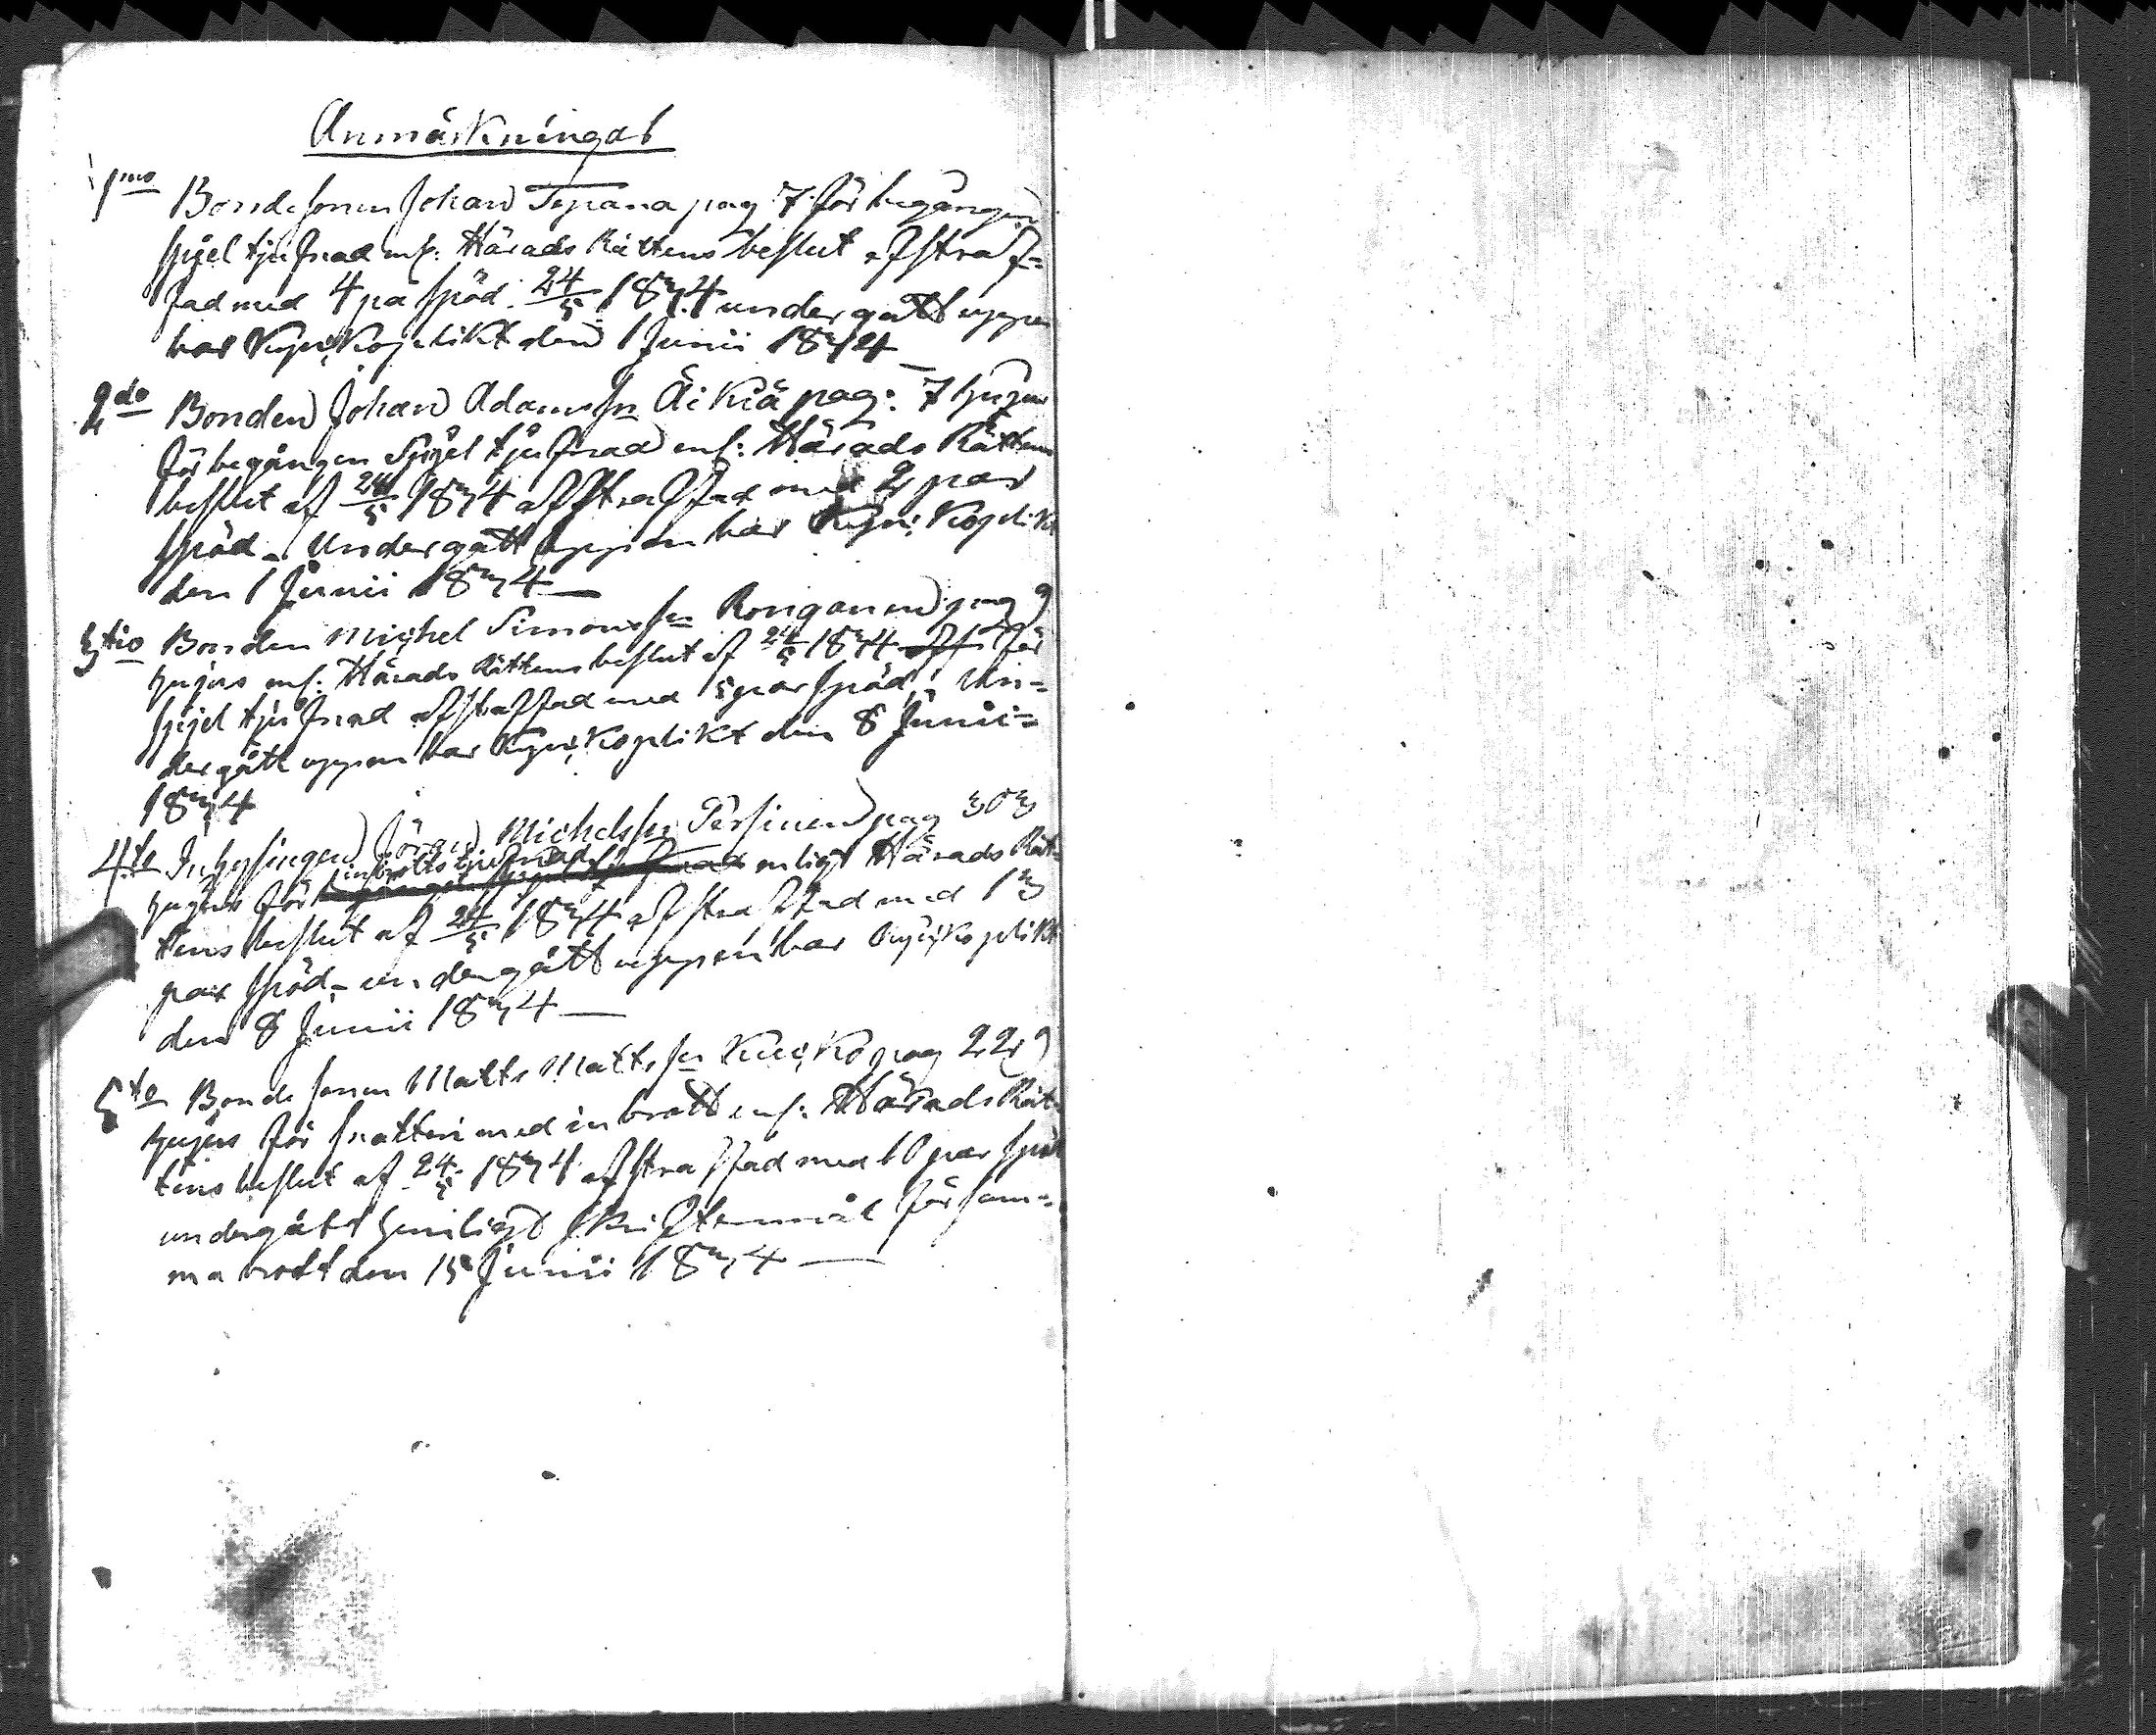 Anmärkningar
1mo Bondesonen Johan Tepana pag 7 för begången
spijel tjufnad enl. Härads Rättens beslut afstraf=
fad med 4 par spöd 24/5 1834 undergått uppen
bar Kyrkoplikt den 1 Junii 1834
2do Bonden Johan Adamsson Äikiä pag: 7 hujus
för begången Spijel tjufnad enl: Härads Rättens
beslut af 24/5 1834 afstraffad med 2 par
spöd – Undergått uppenbar Kyrkoplikt
den 1 Junii 1834 —
3tio Bonden Michel Simonsson Rongainen pag 9
hujus enl: Härads Rättens beslut af 24/5 1834 för
spijel tjufnad afstraffad med 5 par spöd; Un=
dergått uppenbar Kyrkoplikt den 8 Junii=
1834
4to Inhysingen Jöran Michelsson Pesinen pag 303
hujus för inbrotts tjufnad enligt Härads Rät=
tens beslut af 24/5 1834 afstraffad med 13
par spöd – undergått uppenbar Kyrkoplikt
den 8 Junii 1834 —
5to Bondesonen Matts Mattsson pag 229
hujus för snatteri med inbrott enl: Härads Rät=
tens beslut af 24/5 1834 afstraffad med 10 par spöd
undergått hemligt skriftermål för sam=
ma brott den 15 Junii 1834 —